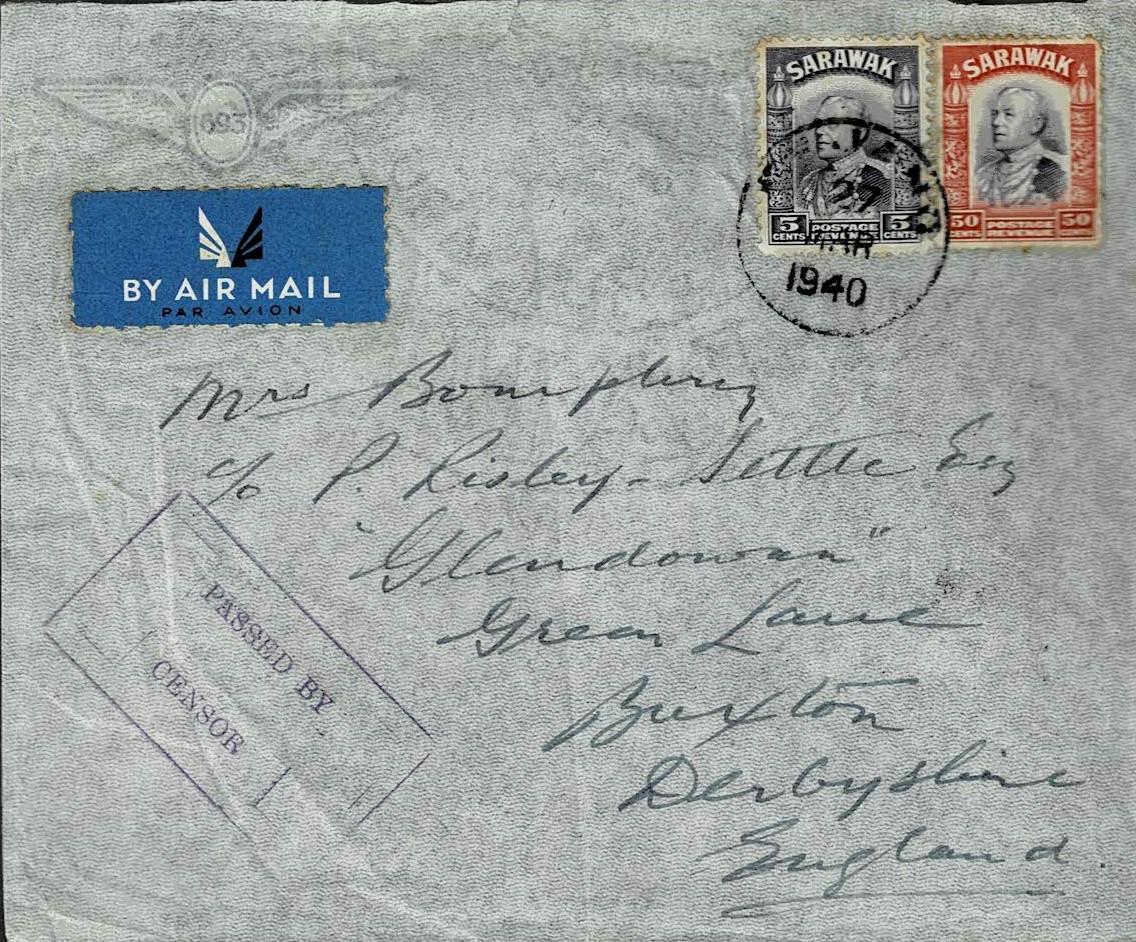 693
BY AIR MAIL
PAR AVION
SARAWAK
5 CENTS
POSTAGE
REVENUE
5 CENTS
SARAWAK
50 CENTS
POSTAGE
REVENUE
50 CENTS
27
MAR
1940
Mrs Bomphrey
c/o P. Risley-Settle Esq
"Glendowan"
Green Lane
Buxton
Derbyshire
England.
PASSED BY
CENSOR